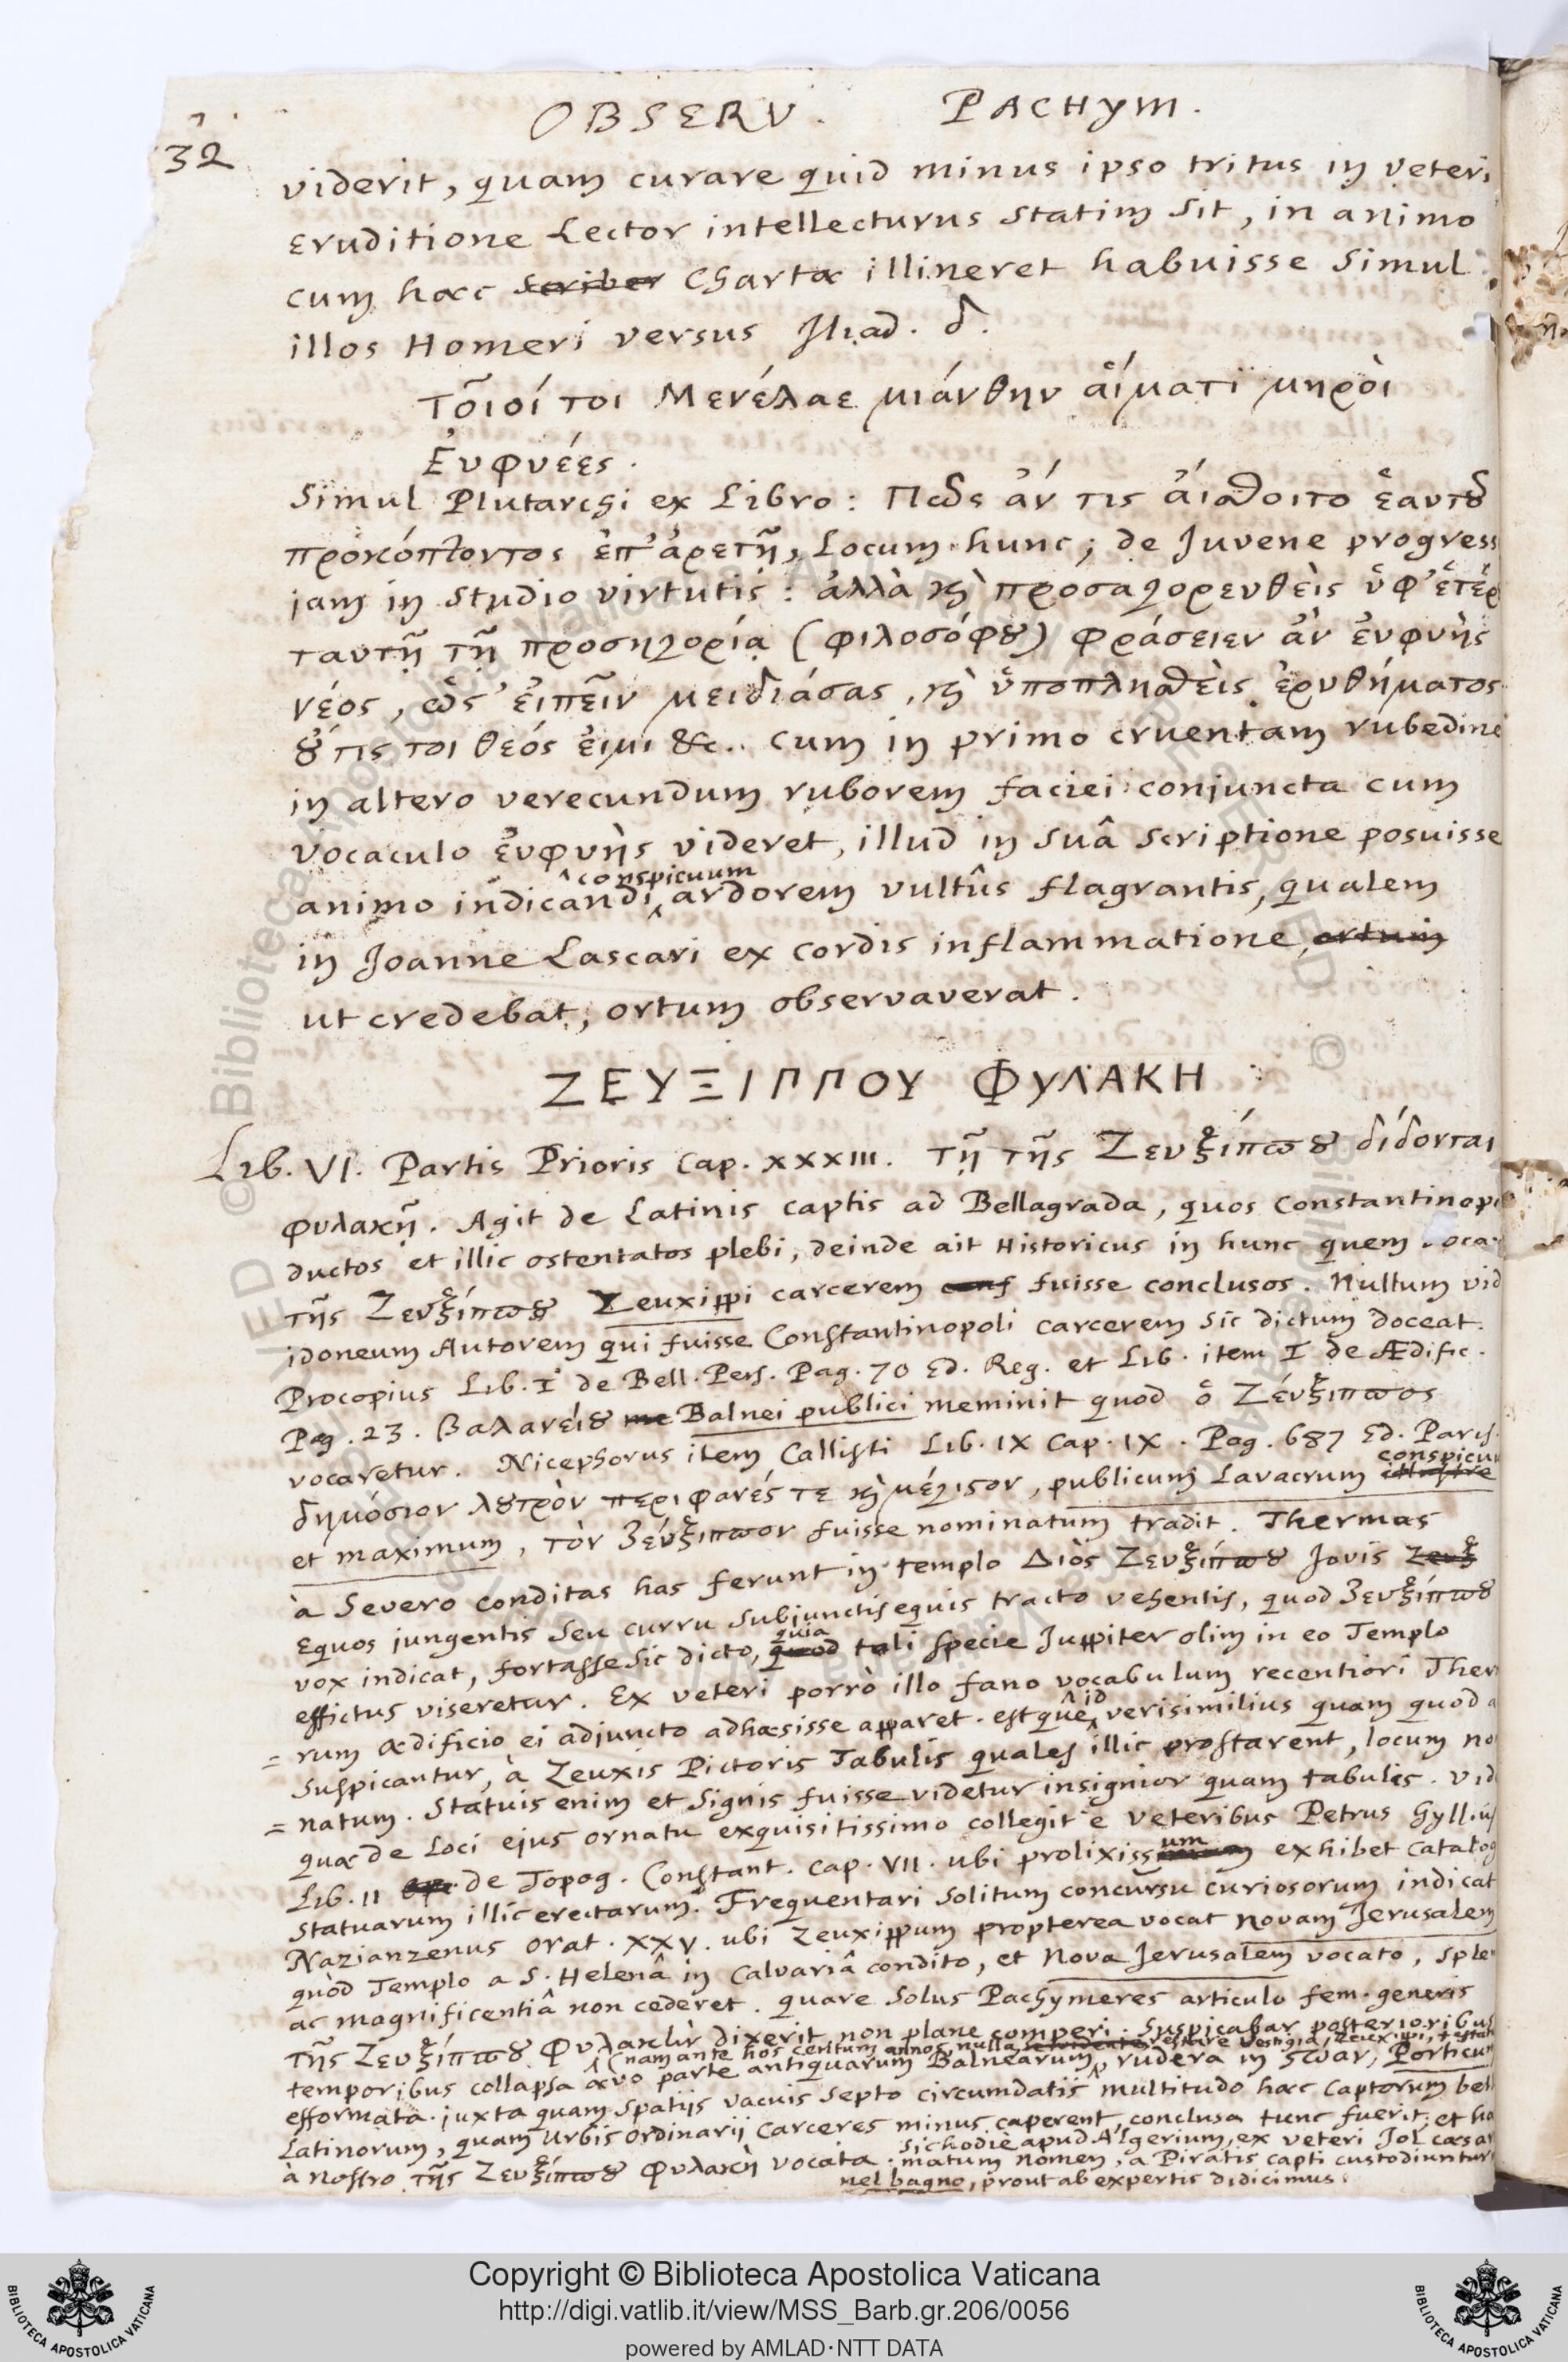 OBSERV. PACHYM.
32
viderit, quam curare quid minus ipso tritus in veteri
eruditione Lector intellecturus statim sit, in animo
cum hæc scriber Chartæ illineret habuisse simul
illos Homeri versus Iliad. δ.
Τοῖοί τοι Μενέλαε μιάνθην αἵματι μηροὶ
Ἐυφυέες.
Simul Plutarchi ex Libro: Πῶς ἄν τις ἄισθοιτο ἑαυτȣ͂
προκόπτοντος ἐπ' ἀρετῇ, Locum hunc; de Juvene progress
jam in studio virtutis: ἀλλὰ ϗ̀ προσαγορευθεὶς ὑφ' ἑτέρ
ταυτῇ τῇ προσηγορίᾳ (φιλοσόφȣ) φράσειεν ἂν ἐυφυὴς
νέος, ὡς ἐιπεῖν μειδιάσας, ϗ̀ ὑποπλησθεὶς ἐρυθήματος
ȣ́ τις τοι θεός ἐιμι &c. cum in primo cruentam rubedine
in altero verecundum ruborem faciei conjuncta cum
vocaculo ἐυφυὴς videret, illud in suâ scriptione posuisse
conspicuum
animo indicandi ardorem vultûs flagrantis, qualem
in Joanne Lascari ex cordis inflammatione, ortum
ut credebat, ortum observaverat.
ΖΕΥΞΙΠΠΟΥ ΦΥΛΑΚΗ
Lib. VI. Partis Prioris Cap. XXXIII. τῇ τῆς Ζευξίππȣ δίδονται
φυλακῇ. Agit de Latinis captis ad Bellagrada, quos Constantinop
ductos et illic ostentatos plebi, deinde ait Historicus in hunc quem voca
τῆς Ζευξίππȣ Zeuxippi carcerem conf fuisse conclusos. Nullum vid
idoneum Autorem qui fuisse Constantinopoli carcerem sic dictum doceat.
Procopius Lib. I de Bell. Pers. Pag. 70 Ed. Reg. et Lib. item I de Ædific.
Pag. 23. βαλανείȣ me Balnei publici meminit quod ὁ Ζέυξιππος
vocaretur. Nicephorus item Callisti Lib. IX Cap. IX. Pag. 687 Ed. Paris.
conspicuu
δημόσιον λȣτρὸν περιφανές τε ϗ̀ μέγιστον, publicum Lavacrum illustre
et maximum, τὸν Ζέυξιππον fuisse nominatum tradit. Thermas
à Severo conditas has ferunt in templo Διὸς Ζευξίππȣ Jovis Zeux
Equos jungentis seu curru subjunctis equis tracto vehentis, quod Ζευξίππȣ
quia
vox indicat, fortasse sic dicto, quod tali specie Juppiter olim in eo Templo
effictus viseretur. Ex veteri porrò illo fano vocabulum recentiori Ther
id
= rum ædificio ei adjuncto adhæsisse apparet. estquê verisimilius quam quod a
suspicantur, à Zeuxis Pictoris Tabulis quales illic prostarent, locum no
= natum. Statuis enim et signis fuisse videtur insignior quam tabulis. Vid
quæ de Loci ejus ornatu exquisitissimo collegit è veteribus Petrus Gyllius
um
Lib. II de Topog. Constant. Cap. VII. ubi prolixiss exhibet Catalog
statuarum illic erectarum. Frequentari solitum concursu curiosorum indicat
Nazianzenus orat. XXV. ubi Zeuxippum propterea vocat novam Jerusalem
quòd Templo a S. Helenâ in Calvariâ condito, et Nova Jerusalem vocato, sple
ac magnificentiâ non cederet. quare solus Pachymeres articulo fem. generis
τῆς Ζευξίππȣ Φυλακὴν dixerit non plane comperi. Suspicabar posterioribus
(nam ante hos centum annos nulla
temporibus collapsa ævo parte antiquarum Balnearum, rudera in στοὰν, Porticum
efformata. juxta quam spatijs vacuis septo circumdatis multitudo hæc captorum bell
Latinorum, quam Urbis ordinarij Carceres minus caperent, conclusa tunc fuerit; et ha
à nostro τῆς Ζευξίππȣ Φυλακὴ vocata.
sic hodie apud Algerium, ex veteri Jol Cæsar
matum nomen, a Piratis capti custodiuntur
nel bagno, prout ab expertis didicimus.
Copyright © Biblioteca Apostolica Vaticana
http://digi.vatlib.it/view/MSS_Barb.gr.206/0056
powered by AMLAD·NTT DATA
BIBLIOTECA APOSTOLICA VATICANA
BIBLIOTECA APOSTOLICA VATICANA